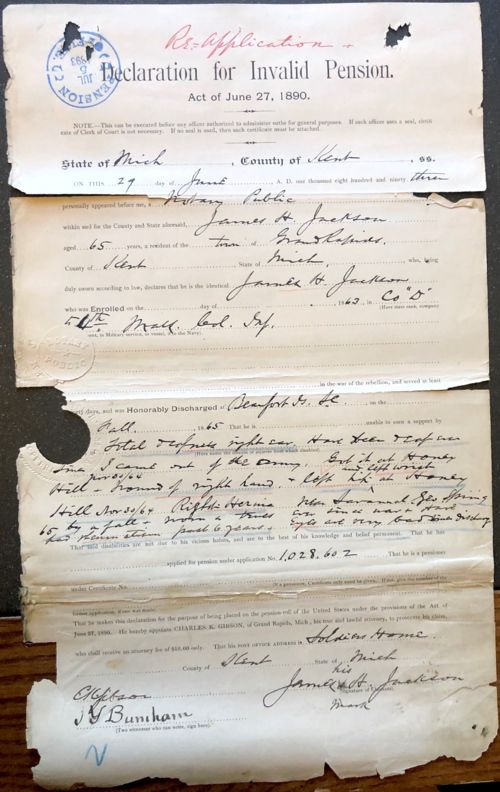 Re-Application
Declaration for Invalid Pension.
Act of June 27, 1890.
NOTE.—This can be executed before any officer authorized to administer oaths for general purposes. If such officer uses a seal, certifi-
cate of Clerk of Court is not necessary. If no seal is used, then such certificate must be attached.
State of Mich, County of Kent, ss.
ON THIS 29 day of June, A. D. one thousand eight hundred and ninety three
personally appeared before me, a Notary Public
within and for the County and State aforesaid, James H. Jackson
aged 65 years, a resident of the town of Grand Rapids
County of Kent State of Mich, who, being
duly sworn according to law, declares that he is the identical James H. Jackson
who was Enrolled on the day of 1863, in Co "D"
(Here state rank, company
4th Mass. Col. Inf.
in Military service, or vessel, if in the Navy)
in the war of the rebellion, and served at least
days, and was Honorably Discharged at Beaufort Is. SC on the
Fall 1865 That he is unable to earn a support
Total deafness right ear. Have been deaf ever
since I came out of the army. Got it at Honey
Nov 30/64 and left wrist
Hill + wound of right hand + left at Honey
Hill Nov 30/64 Right Hernia near Savannah Geo Spring
65 by a fall + worn a truss ever since war + Have
had past 6 years + Eyes are very bad since discharge
That said disabilities are not due to his vicious habits, and are to the best of his knowledge and belief permanent. That he has
applied for pension under application No. 1,028,602 That he is a pensioner
under Certificate No.
former application, if one was made)
That he makes this declaration for the purpose of being placed on the pension-roll of the United States under the provisions of the Act of
June 27, 1890. He hereby appoints CHARLES K. GIBSON, of Grand Rapids, Mich., his true and lawful attorney, to prosecute his claim,
who shall receive an attorney fee of $10.00 only. That his POST OFFICE ADDRESS is Soldiers Home
County of Kent State of Mich
his
James H. Jackson
Signature of Claimant
mark
CK Gibson
(Two witnesses who can write, sign here).